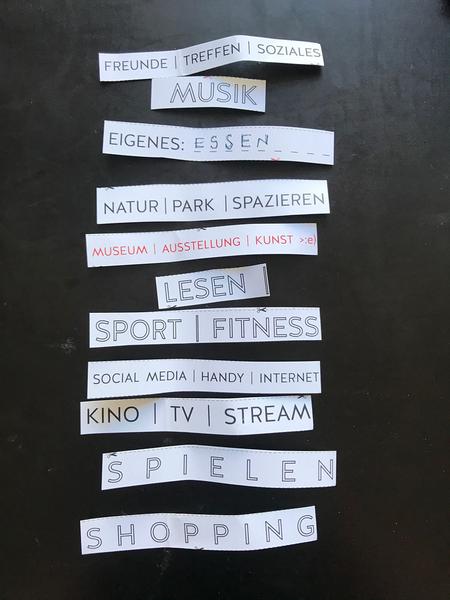 FREUNDE | TREFFEN | SOZIALES
MUSIK
EIGENES: ESSEN
NATUR | PARK | SPAZIEREN
MUSEUM | AUSSTELLUNG | KUNST >:e)
LESEN
SPORT | FITNESS
SOCIAL MEDIA | HANDY | INTERNET
KINO | TV | STREAM
SPIELEN
SHOPPING